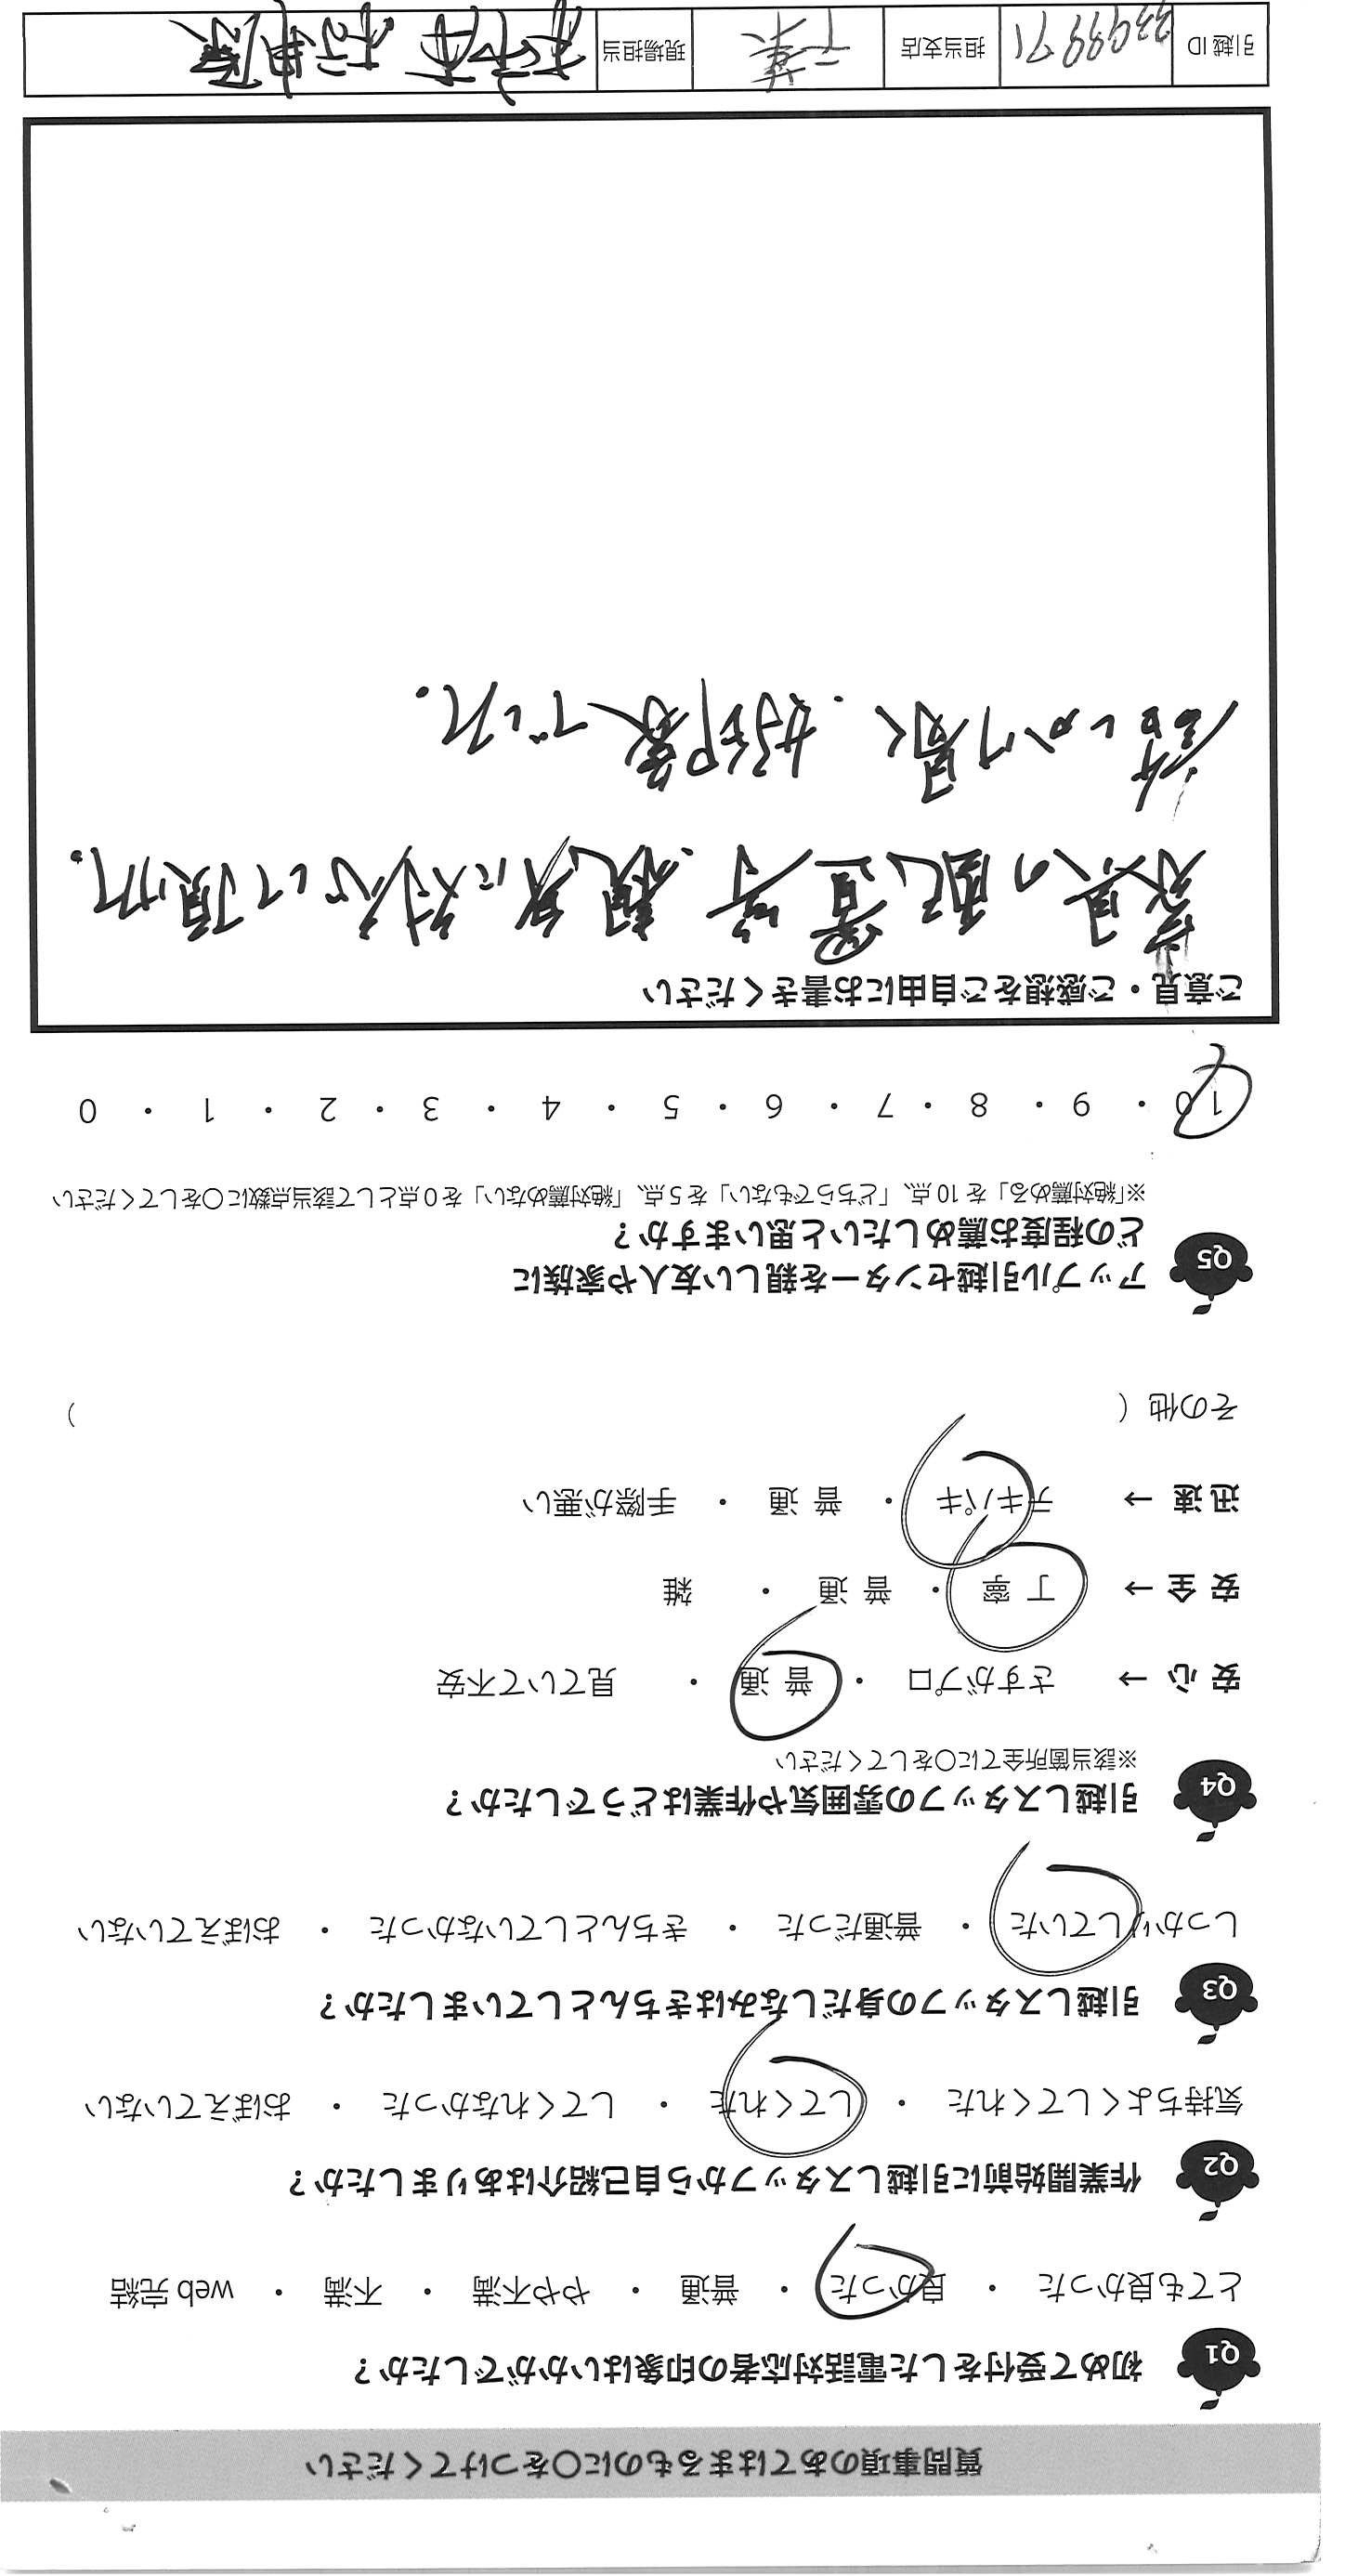 質問事項のあてはまるものに○をつけてください
Q1 初めて受付をした電話対応者の印象はいかがでしたか?
とても良かった ・ 良かった ・ 普通 ・ やや不満 ・ 不満 ・ web 完結
Q2 作業開始前に引越しスタッフから自己紹介はありましたか?
気持ちよくしてくれた ・ してくれた ・ してくれなかった ・ おぼえていない
Q3 引越しスタッフの身だしなみはきちんとしていましたか?
しっかりしていた ・ 普通だった ・ きちんとしていなかった ・ おぼえていない
Q4 引越しスタッフの雰囲気や作業はどうでしたか?
※該当箇所全てに○をしてください
安 心 → さすがプロ ・ 普 通 ・ 見ていて不安
安 全 → 丁 寧 ・ 普 通 ・ 雑
迅 速 → テキパキ ・ 普 通 ・ 手際が悪い
その他 ( )
Q5 アップル引越センターを親しい友人や家族に
どの程度お薦めしたいと思いますか?
※「絶対薦める」を 10 点、「どちらでもない」を 5 点、「絶対薦めない」を 0 点として該当点数に○をしてください
10 ・ 9 ・ 8 ・ 7 ・ 6 ・ 5 ・ 4 ・ 3 ・ 2 ・ 1 ・ 0
ご意見・ご感想をご自由にお書きください
家具の配置等、親身に対応して頂けた。
話しかけ易く、好印象でした。
引越 ID 担当支店 千葉 現場担当